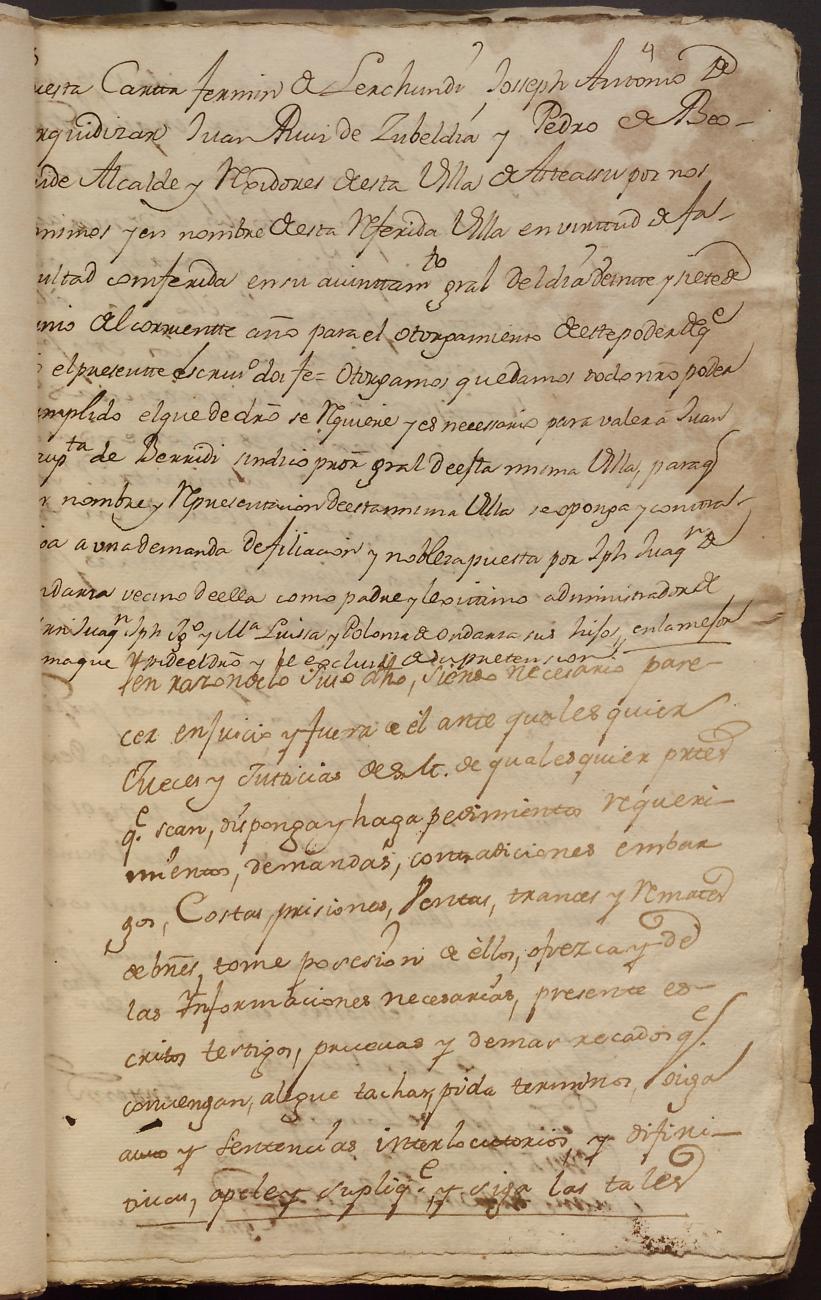 4
uesta Carta fermin de Lerchundi, Joseph Antonio de
rquidizar Juan Ruiz de Zubeldia y Pedro de Beo-
ide Alcalde y Rexidores de esta Villa de Arteassu por nos
mismos y en nombre de esta Referida Villa en virttud de fa-
ultad comferida en su aiunttamto gral del dia beintte y siete de
unio del corrientte año para el otorgamiento de este poder de qe
el presentte escriuo doi fe = Otorgamos que damos todo nro poder
umplido el que de dro se Requiere y es necessario para valer a Juan
upta de Berridi sindico pror gral de esta misma Villa, para q
r nombre y Representacion de esta misma Villa se oponga y conttra-
ga a vna demanda de filiacion y nobleza puesta por Jph Juaqn de
ndarra vecino de ella como padre y lexittimo administrador de
Juaqn Jph Igo y Ma Luissa y Polonia de ondarra sus hijos, en la mejor
ma que pide el dro y se escluido de su pretension
en razon de lo Suso dho, siendo necesario pare-
cer en Juicio y fuera de él ante qualesquier
Jueces y Justicias de S. M. de qualesquier prtes
qe. sean, disponga y haga pedimientos requeri-
mientos, demandas, contradiciones embar
gos, Costas, prisiones, Ventas, trances y Remates
de bnes, tome posesion de ellos, ofrezca y dé
las Informaciones necesarias, presente es-
critos testigos, prueuas y demas recados qe.
convengan, alegue tachas, pida terminos, oiga
auto y Sentencias interlocutorios, y difini-
tiuas, apele y supliqe. y siga las tales